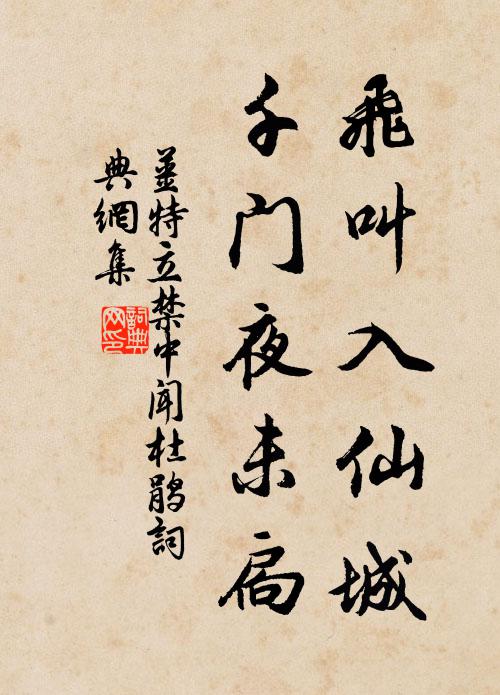 飛叫入仙城
千门夜未扃
薑特立禁中闻杜鹃詞
典網集
詞典
网印